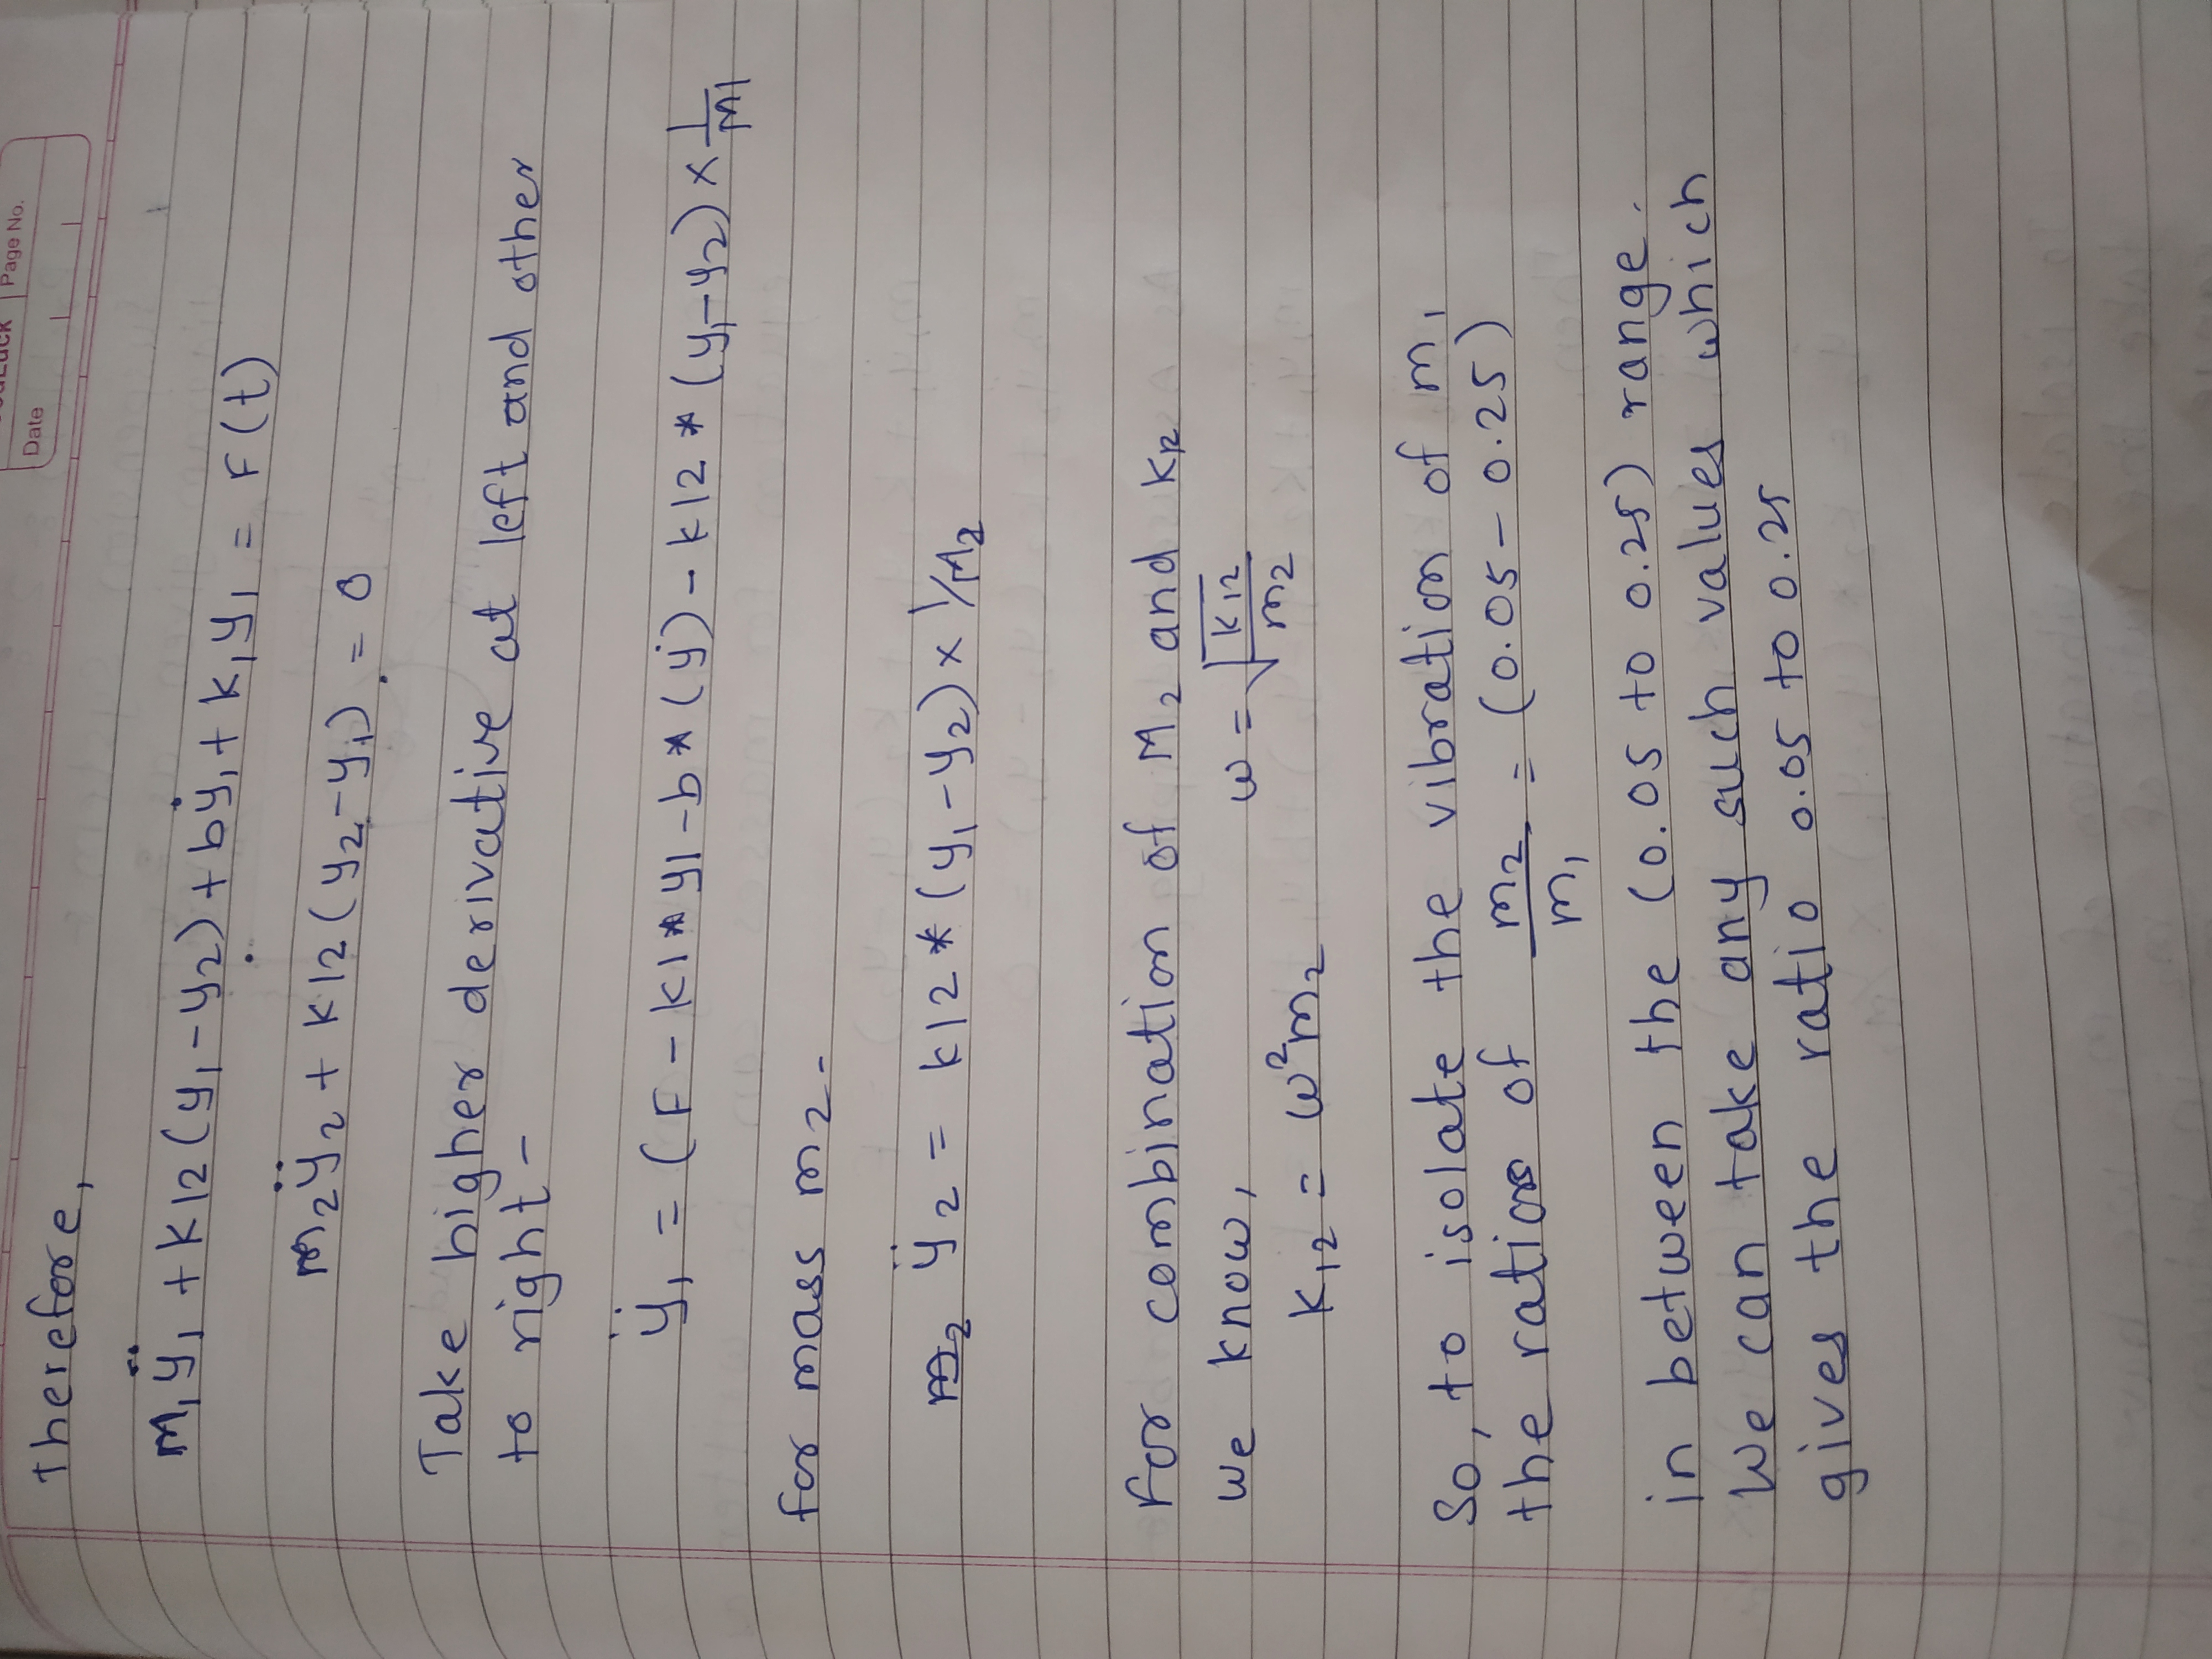 Page No.
Date
Therefore,
m₁ÿ₁ + K12(y₁-y₂) + bẏ₁ + k₁y₁ = F(t)
m₂ÿ₂ + K12(y₂-y₁) = 0
Take higher derivative at left and other
to right -
ÿ₁ = (F - K1*y1 - b*(ẏ) - k12*(y₁-y₂) × 1/m1
for mass m2-
ÿ₂ = k12*(y₁-y₂) × 1/M₂
For combination of M₂ and K₁₂
we know, ω = √(K₁₂/m₂)
K₁₂ = ω²m₂
So, to isolate the vibration of m₁
the ratio of m₂/m₁ = (0.05 - 0.25)
in between the (0.05 to 0.25) range.
We can take any such values which
gives the ratio 0.05 to 0.25